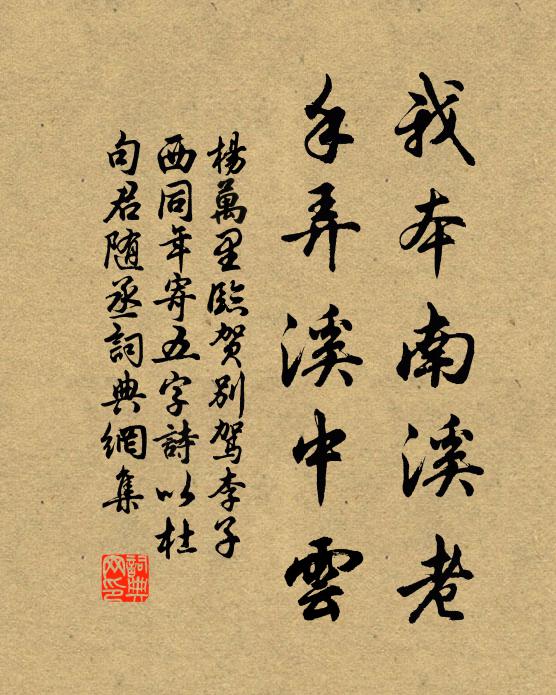 我本南溪老
手弄溪中雲
楊萬里臨賀別駕李子
西同年寄五字詩以杜
句君随丞詞典網集
詞典网印